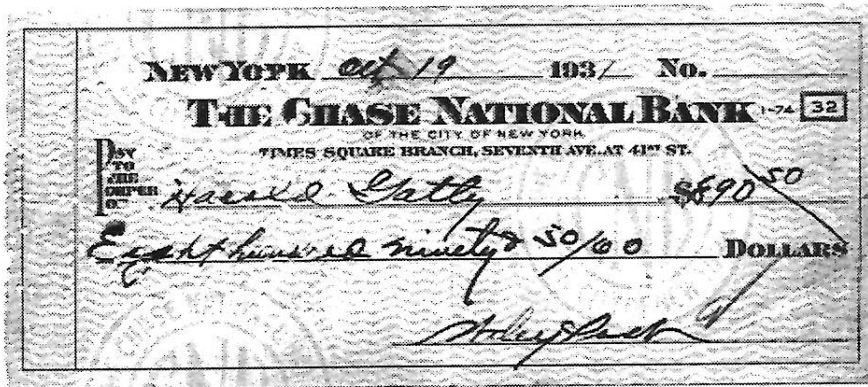 NEW YORK Oct 19 1931 No.
THE CHASE NATIONAL BANK 1-74 32
OF THE CITY OF NEW YORK
TIMES SQUARE BRANCH, SEVENTH AVE. AT 41ST ST.
PAY TO THE ORDER OF Harold Gatty $890 50
Eight hundred ninety & 50/00 DOLLARS
Wiley Post